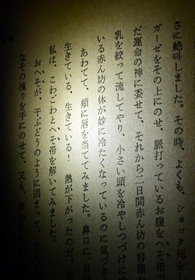 さに絶叫しました。その時、よくも、ショック死
ガーゼをその上にのせ、脈打っているお腹をへそ帯
だ運命の神に委せて、それから二日間赤ん坊の容
乳を絞って流してやり、小さい頭を冷やしつづけ
いる赤ん坊の体が妙に冷たくなっているのに気づき
あわてて、頬に唇を当ててみました。鼻口に、
生きている、生きている！　熱が下がったのだ。
私は、こわごわとへそ帯を解いてみました
おへそが、干ぶどうのように固まって、
なその塊りを手にのせて、又も、